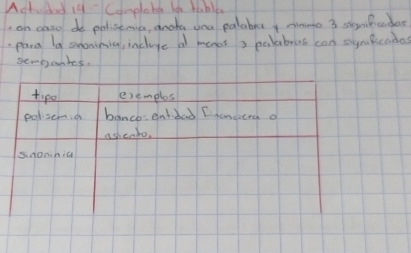 Actividad 19 Completa la tabla
. en caso de polisemia, anota una palabra y minimo 3 significados
. para la sinonimia, incluye al menos 3 palabras con significados
semejantes.
tipo ejemplos
polisemia banco: entidad financiera o
asiento.
sinonimia